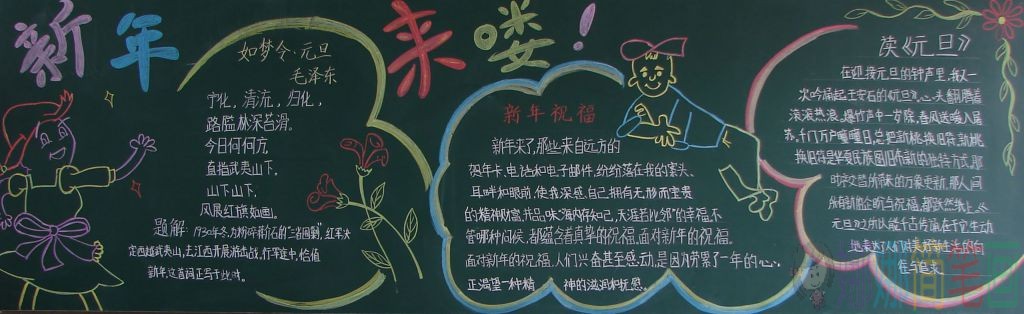 新年来喽！
如梦令·元旦
毛泽东
宁化，清流，归化，
路隘林深苔滑。
今日何何方，
直指武夷山下，
山下山下，
风展红旗如画。
题解：1930年冬，为粉碎蒋石的"三省围剿"，红军决
定西越武夷山，去江西开展游击战，行军途中，恰值
新年，这首词正写于此时。
新年祝福
新年来了，那些来自远方的
贺年卡、电话和电子邮件，纷纷落在我的案头、
耳畔和眼前，使我深感自己拥有无形而宝贵
的精神财富，找品味"海内存知己，天涯若比邻"的幸福，不
管哪种问候，都蕴含着真挚的祝福。面对新年的祝福。
面对新年的祝福，人们兴奋甚至感动，是因为劳累了一年的心
正渴望一种精 神的滋润和抚慰。
读《元旦》
在迎接元旦的钟声里，我又一
次吟诵起王安石的《元旦》。心头翻腾着
滚滚热浪。爆竹声中一岁除，春风送暖入屠
苏。千门万户曈曈日，总把新桃换旧符。新桃
换旧符是华夏民族图旧布新的独特方式，那
时序交替所带来的万象更新，那人间
元旦对
住与追求